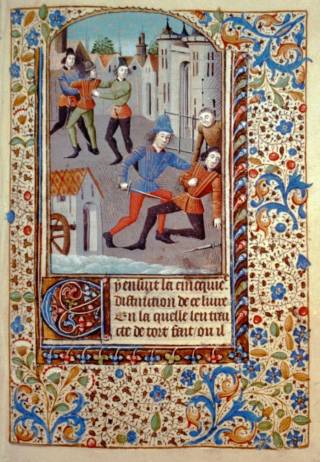 Cy ensuyt la cincquie
distinction de ce liure
En la quelle len trai
cte de tort fait / ou il